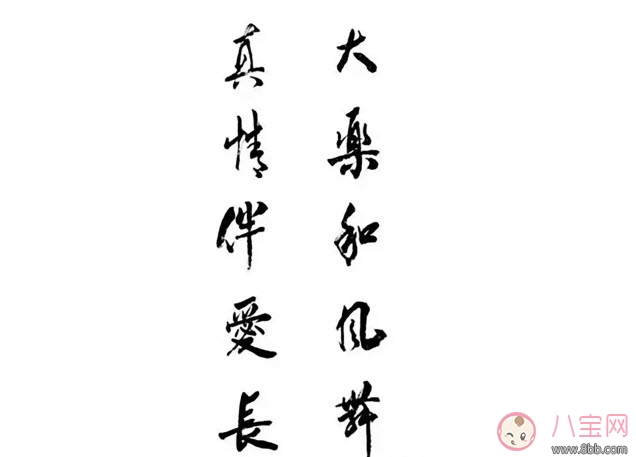 大樂和风舞
真情伴愛長
八宝网
www.8bb.com